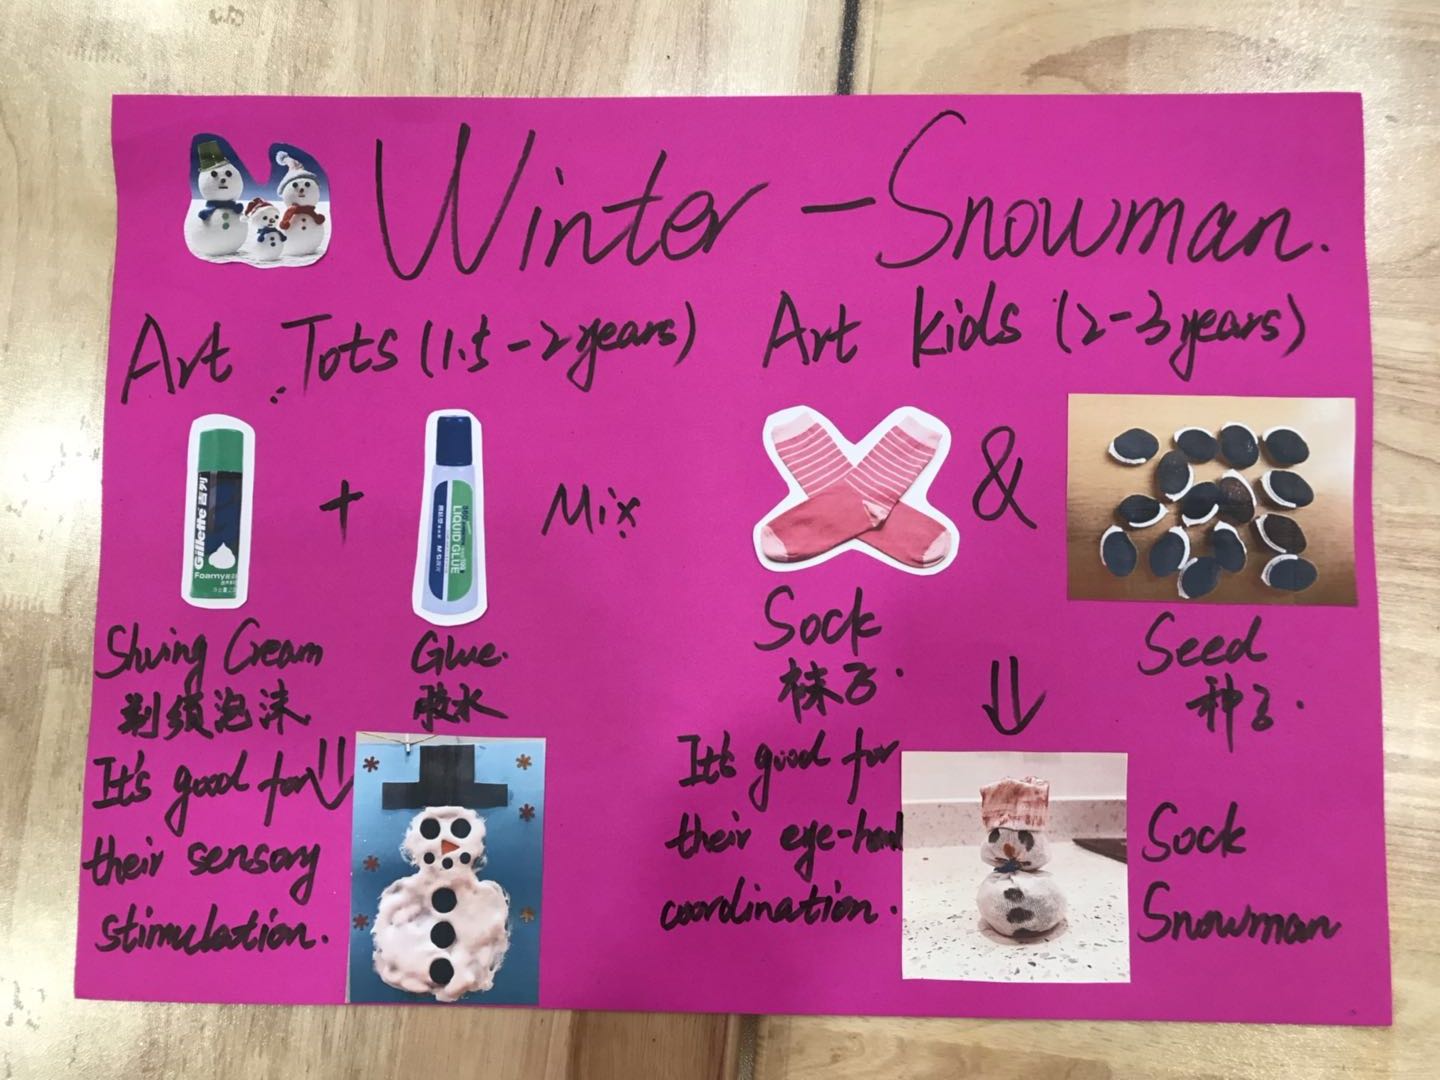 Winter - Snowman.
Art Tots (1.5-2years)
Art kids (2-3years)
Gillette 吉列
Foamy
+
LIQUID GLUE
Mix
&
Shving Cream
剃须泡沫
Glue.
胶水
Sock
袜子.
Seed
种子.
It's good for
their sensory
stimulation.
It's good for
their eye-hand
coordination.
Sock
Snowman